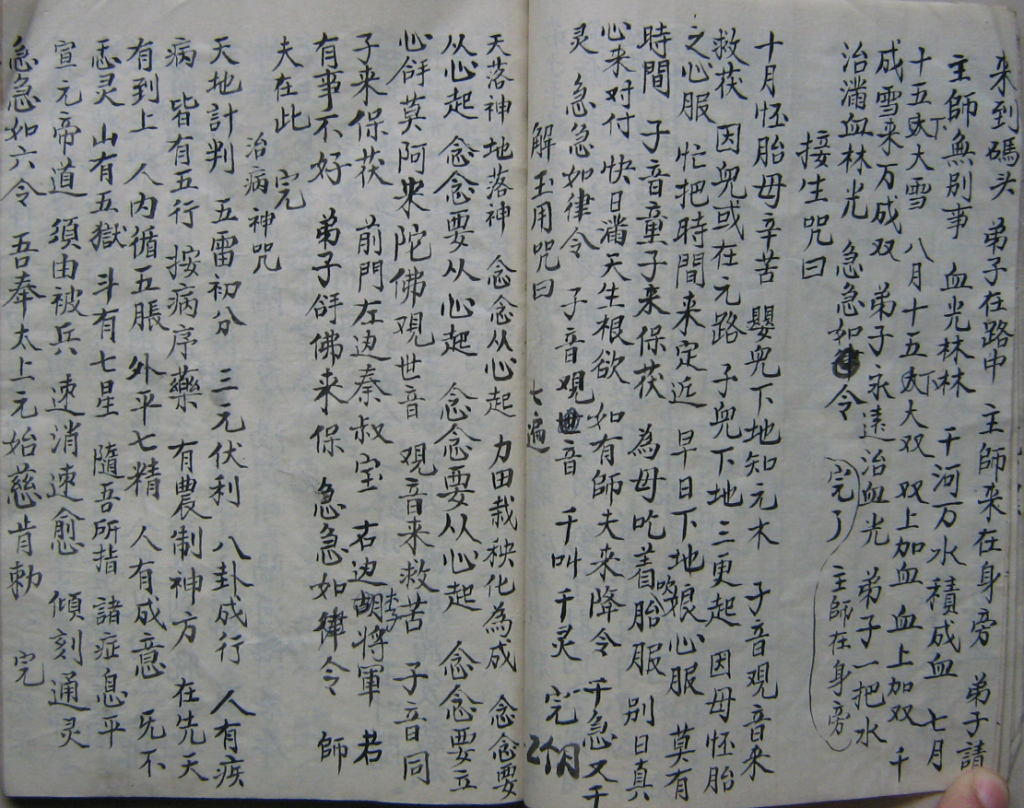 来到碼头 弟子在路中 主師来在身旁 弟子請
主師無別事 血光林林 千河万水積成血 七月
十五下大雪 八月十五下大双 双上加血 血上加双 千
成雪来万成双 弟子永遠治血光 弟子一把水
治滿血林光 急急如律令 完了 主師在身旁
接生咒曰
十月怀胎母辛苦 嬰兒下地知元木 子音观音来
救茯 因兒或在元路 子兒下地三更起 因母怀胎
之心服 忙把時間来定近 早日下地娘心服 莫有
時間 子音童子来保茯 為母吃着胎服 別日真
心来对付 快日滿天生根欲 如有師夫来降令 千急又千
灵 急急如律令 子音观世音 千叫千灵 完
解玉用咒曰 七遍 2个月
天落神 地落神 念念从心起 力田栽秧化為成 念念要
从心起 念念要从心起 念念要从心起 念念要立
心 莫阿来陀佛观世音 观音来救苦 子音同
子来保茯 前門左边秦叔宝 右边胡将軍 若
有事不好 弟子 佛来保 急急如律令 師
夫在此 完
治病神咒
天地計判 五雷初分 三元伏利 八卦成行 人有疾
病 皆有五行 按病序藥 有農制神方 在先天
有到上 人内循五脹 外平七精 人有成意 旡不
恶灵 山有五獄 斗有七星 隨吾所指 諸症息平
宣元帝道 須由被兵 速消速愈 傾刻通灵
急急如六令 吾奉太上元始慈肯勅 完